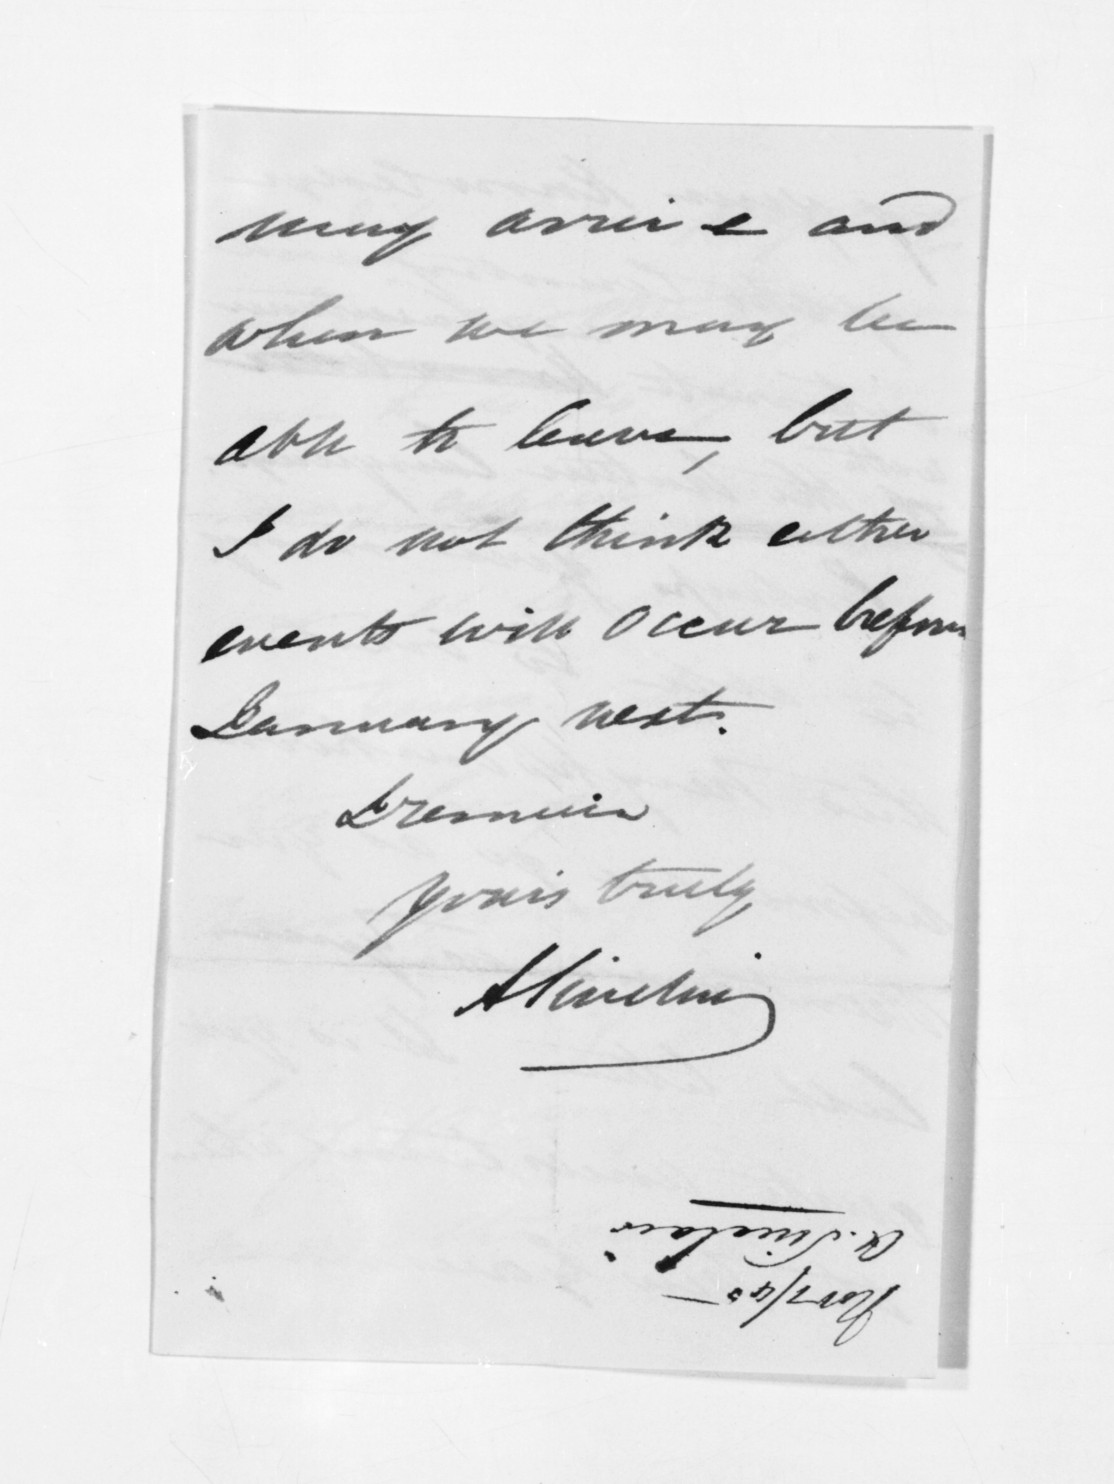 may arrive and
when we may be
able to leave, but
I do not think either
events will occur before
January next.
I remain
Yours truly
A Sinclair
A. Sinclair